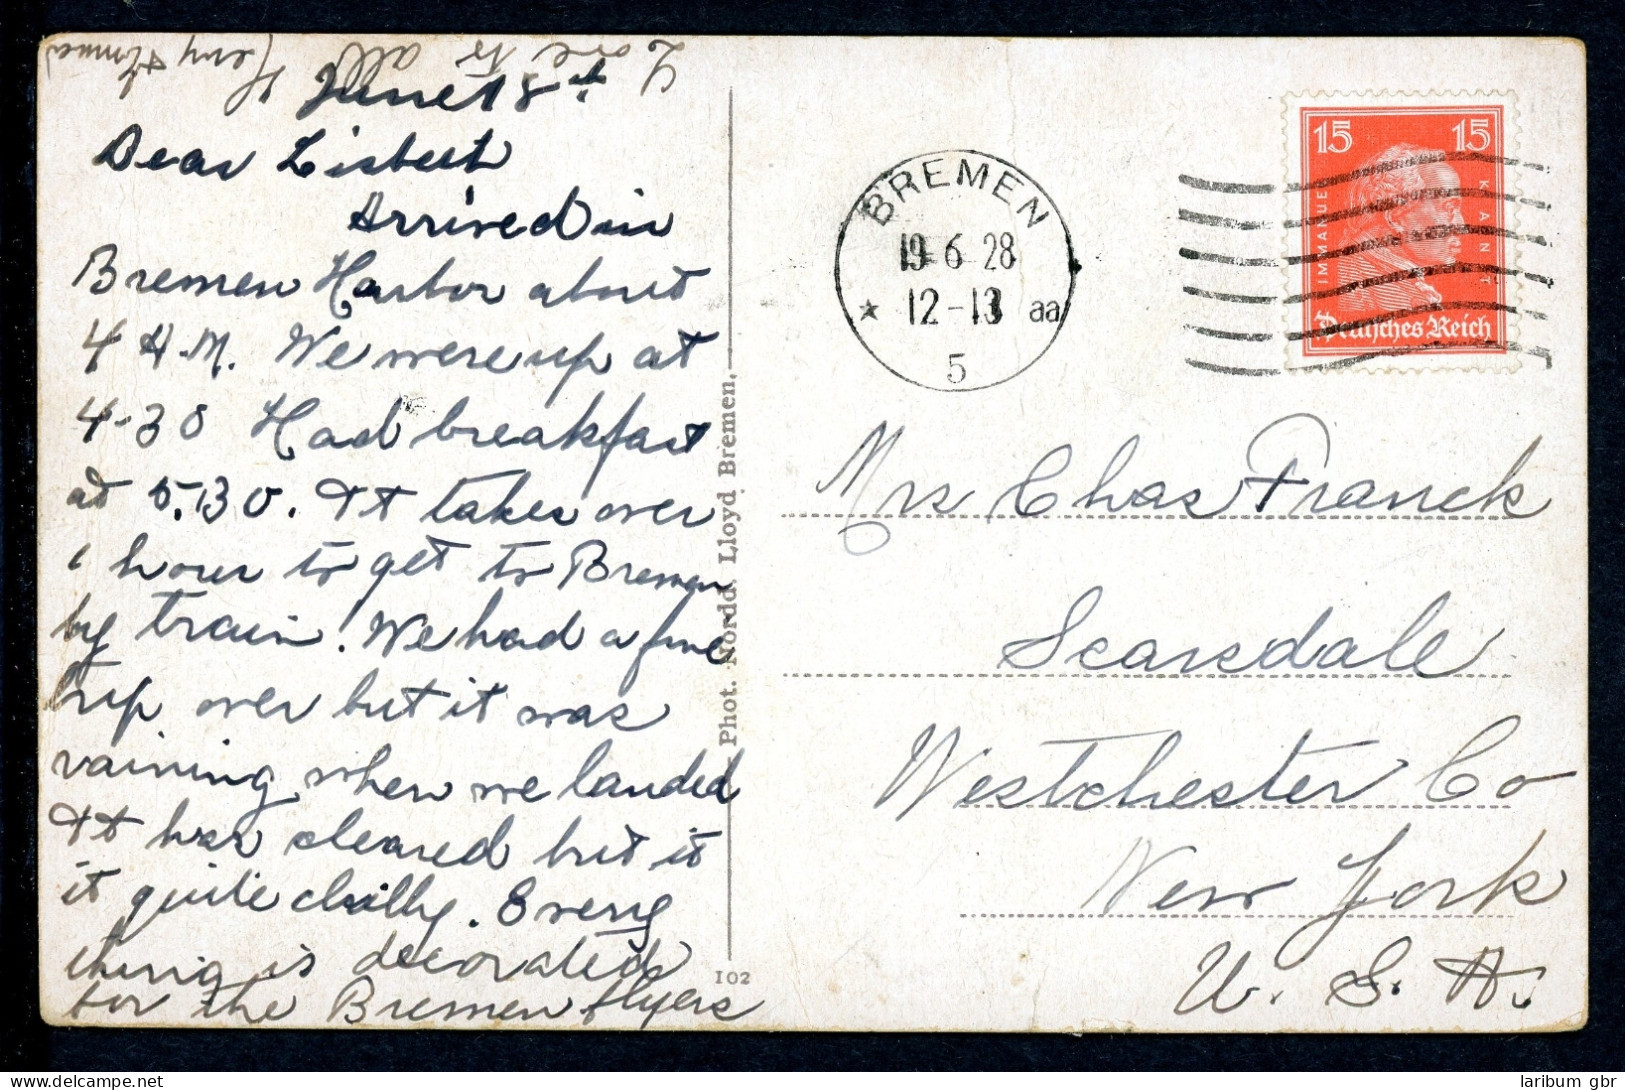 Love to all
June 18th
Dear Lisbeth
Arrived in
Bremen Harbor about
4 A.M. We were up at
4-30 Had breakfast
at 5.30. It takes over
1 hour to get to Bremen
by train. We had a fine
trip over but it was
raining when we landed
It has cleared but it
it quite chilly. Every
thing is decorated
for the Bremen flyers
Phot. Nordd. Lloyd Bremen.
102
BREMEN
19-6-28
12-13 aa
5
15 15
IMMANUEL KANT
Deutsches Reich
Mrs Chas Franck
Scarsdale
Westchester Co
New York
U. S. A.
laribum gbr
delcampe.net